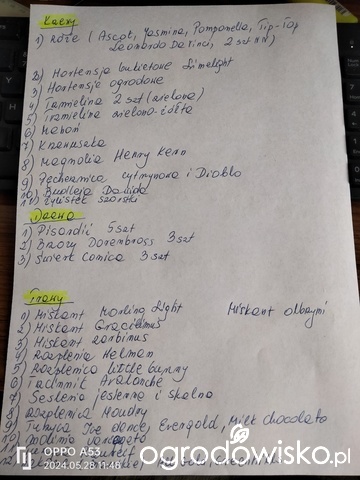 Krzewy
1) Róże (Ascot, Jasmina, Pomponella, Tip-Top
Leonardo Da Vinci, 2 szt NN)
2) Hortensja bukietowa Limelight
3) Hortensje ogrodowe
4) Tamielina 2 szt (zielona)
5) Trzmielina zielono-żółta
6) Mahoń
7) Krzewuszka
8) Magnolia Henry Kern
9) Pęcherznica cytrynowa i Diablo
10) Budleja Davida
11) Żylistek szorstki
Drzewa
1) Pisardii 5 szt
2) Brzozy Dorenboss 3 szt
3) Świerk Conica 3 szt
Trawy
1) Miskant Morling Light Miskant olbrzymi
2) Miskant Gracillimus
3) Miskant zerbinus
4) Rozplenica Helman
5) Rozplenica little bunny
6) Trcinnik Avalanche
7) Seslenia jesienna i skalna
8) Rozplenica Moudry
9) Turzyce Ice dance, Evergold, Milk chocolate
10)
12
OPPO A53
2024.05.28 11:46
ogrodowisko.pl